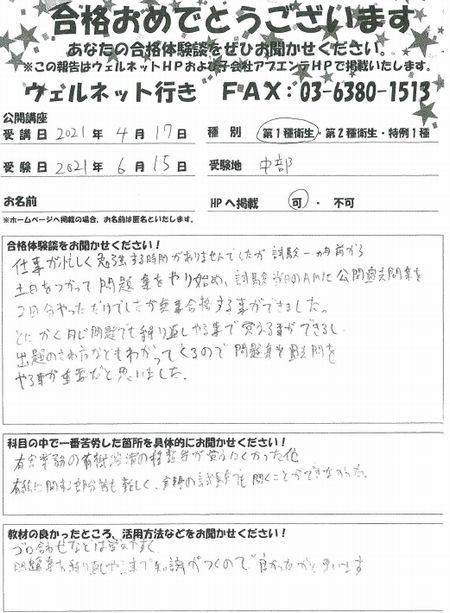 合格おめでとうございます
あなたの合格体験談をぜひお聞かせください。
※この報告はウェルネットHPおよび子会社アプエンテHPで掲載いたします。
ウェルネット行き FAX:03-6380-1513
公開講座
受講日 2021年 4月 17日 種別 第1種衛生・第2種衛生・特例1種
受験日 2021年 6月 15日 受験地 中部
お名前 HPへ掲載 可・不可
※ホームページへ掲載の場合、お名前は匿名といたします。
合格体験談をお聞かせください!
仕事が忙しく勉強する時間がありませんでしたが試験一ヵ月前から
土日をつかって問題集をやり始め、試験当日のAMに公開過去問集を
2回分やっただけでしたが無事合格する事ができました。
とにかく同じ問題でも繰り返しやる事で覚える事ができるし
出題のされ方などもわかってくるので問題集や過去問を
やる事が重要だと思いました。
科目の中で一番苦労した箇所を具体的にお聞かせください!
有害業務の有機溶剤の種類等が覚えにくかった他
有機に関する部分等も難しく、実際の試験でも聞くことができなかった。
教材の良かったところ、活用方法などをお聞かせください!
ゴロ合わせなどは覚えやすく
問題集を繰り返しやる事で知識がつくので良かったかと思います